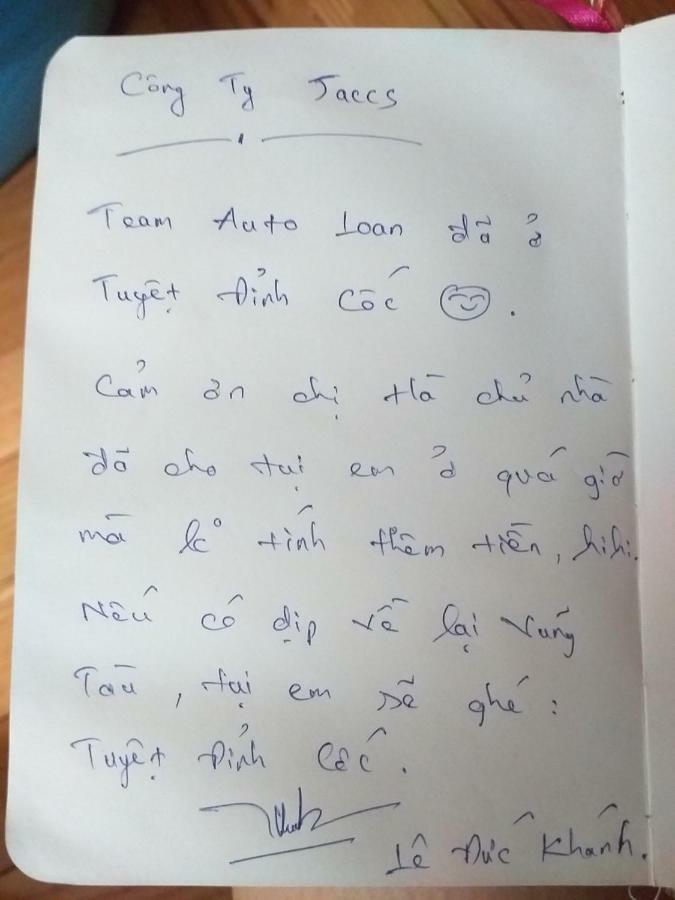 Công Ty Jaccs
Team Auto Loan đã ở
Tuyệt Đỉnh Cốc.
Cảm ơn chị Hà chủ nhà
đã cho tụi em ở quá giờ
mà ko tính thêm tiền, hihi.
Nếu có dịp về lại Vũng
Tàu, tụi em sẽ ghé:
Tuyệt Đỉnh Cốc.
Lê Đức Khánh.